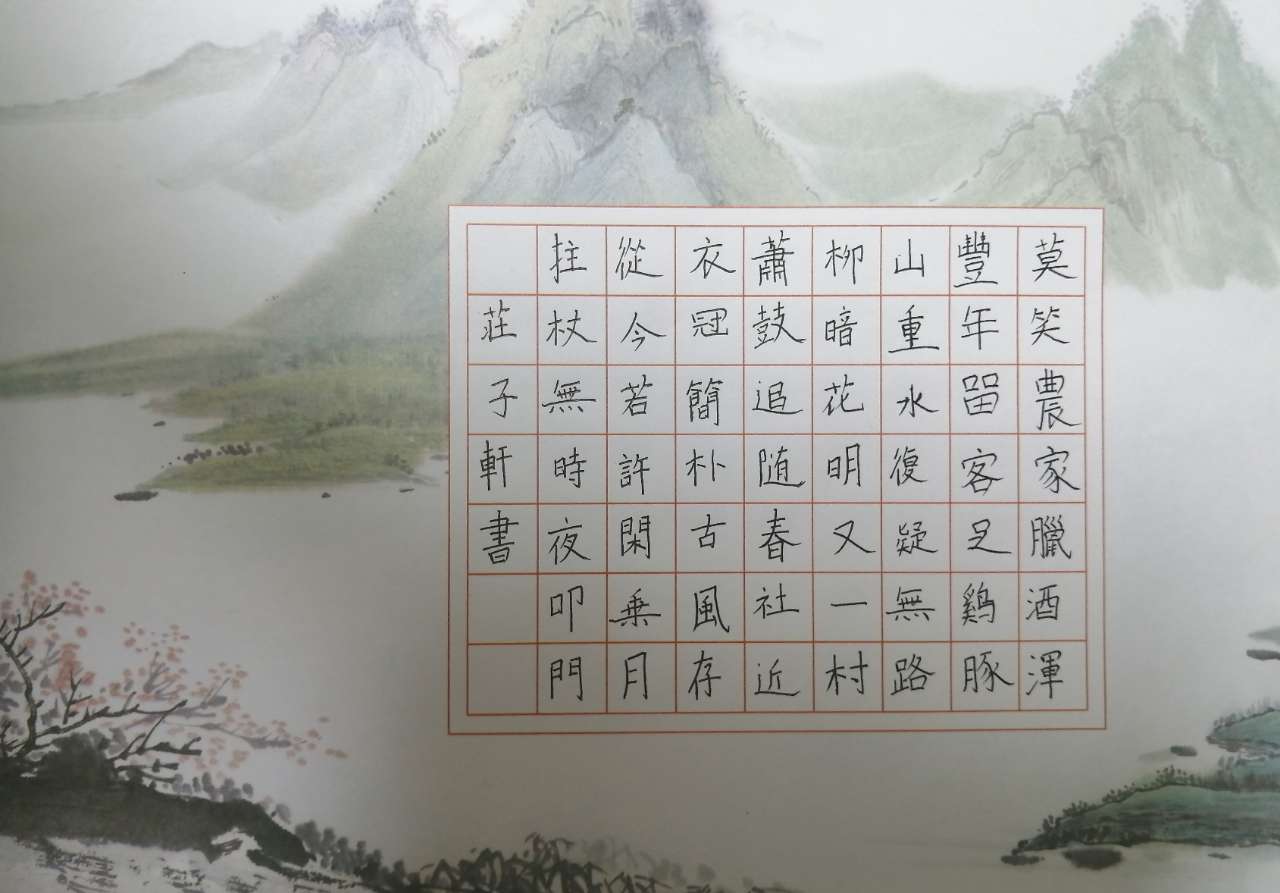 莫笑農家臘酒渾
豐年畱客足鷄豚
山重水復疑無路
柳暗花明又一村
蕭鼓追随春社近
衣冠簡朴古風存
從今若許閑乗月
拄杖無時夜叩門
莊子軒書